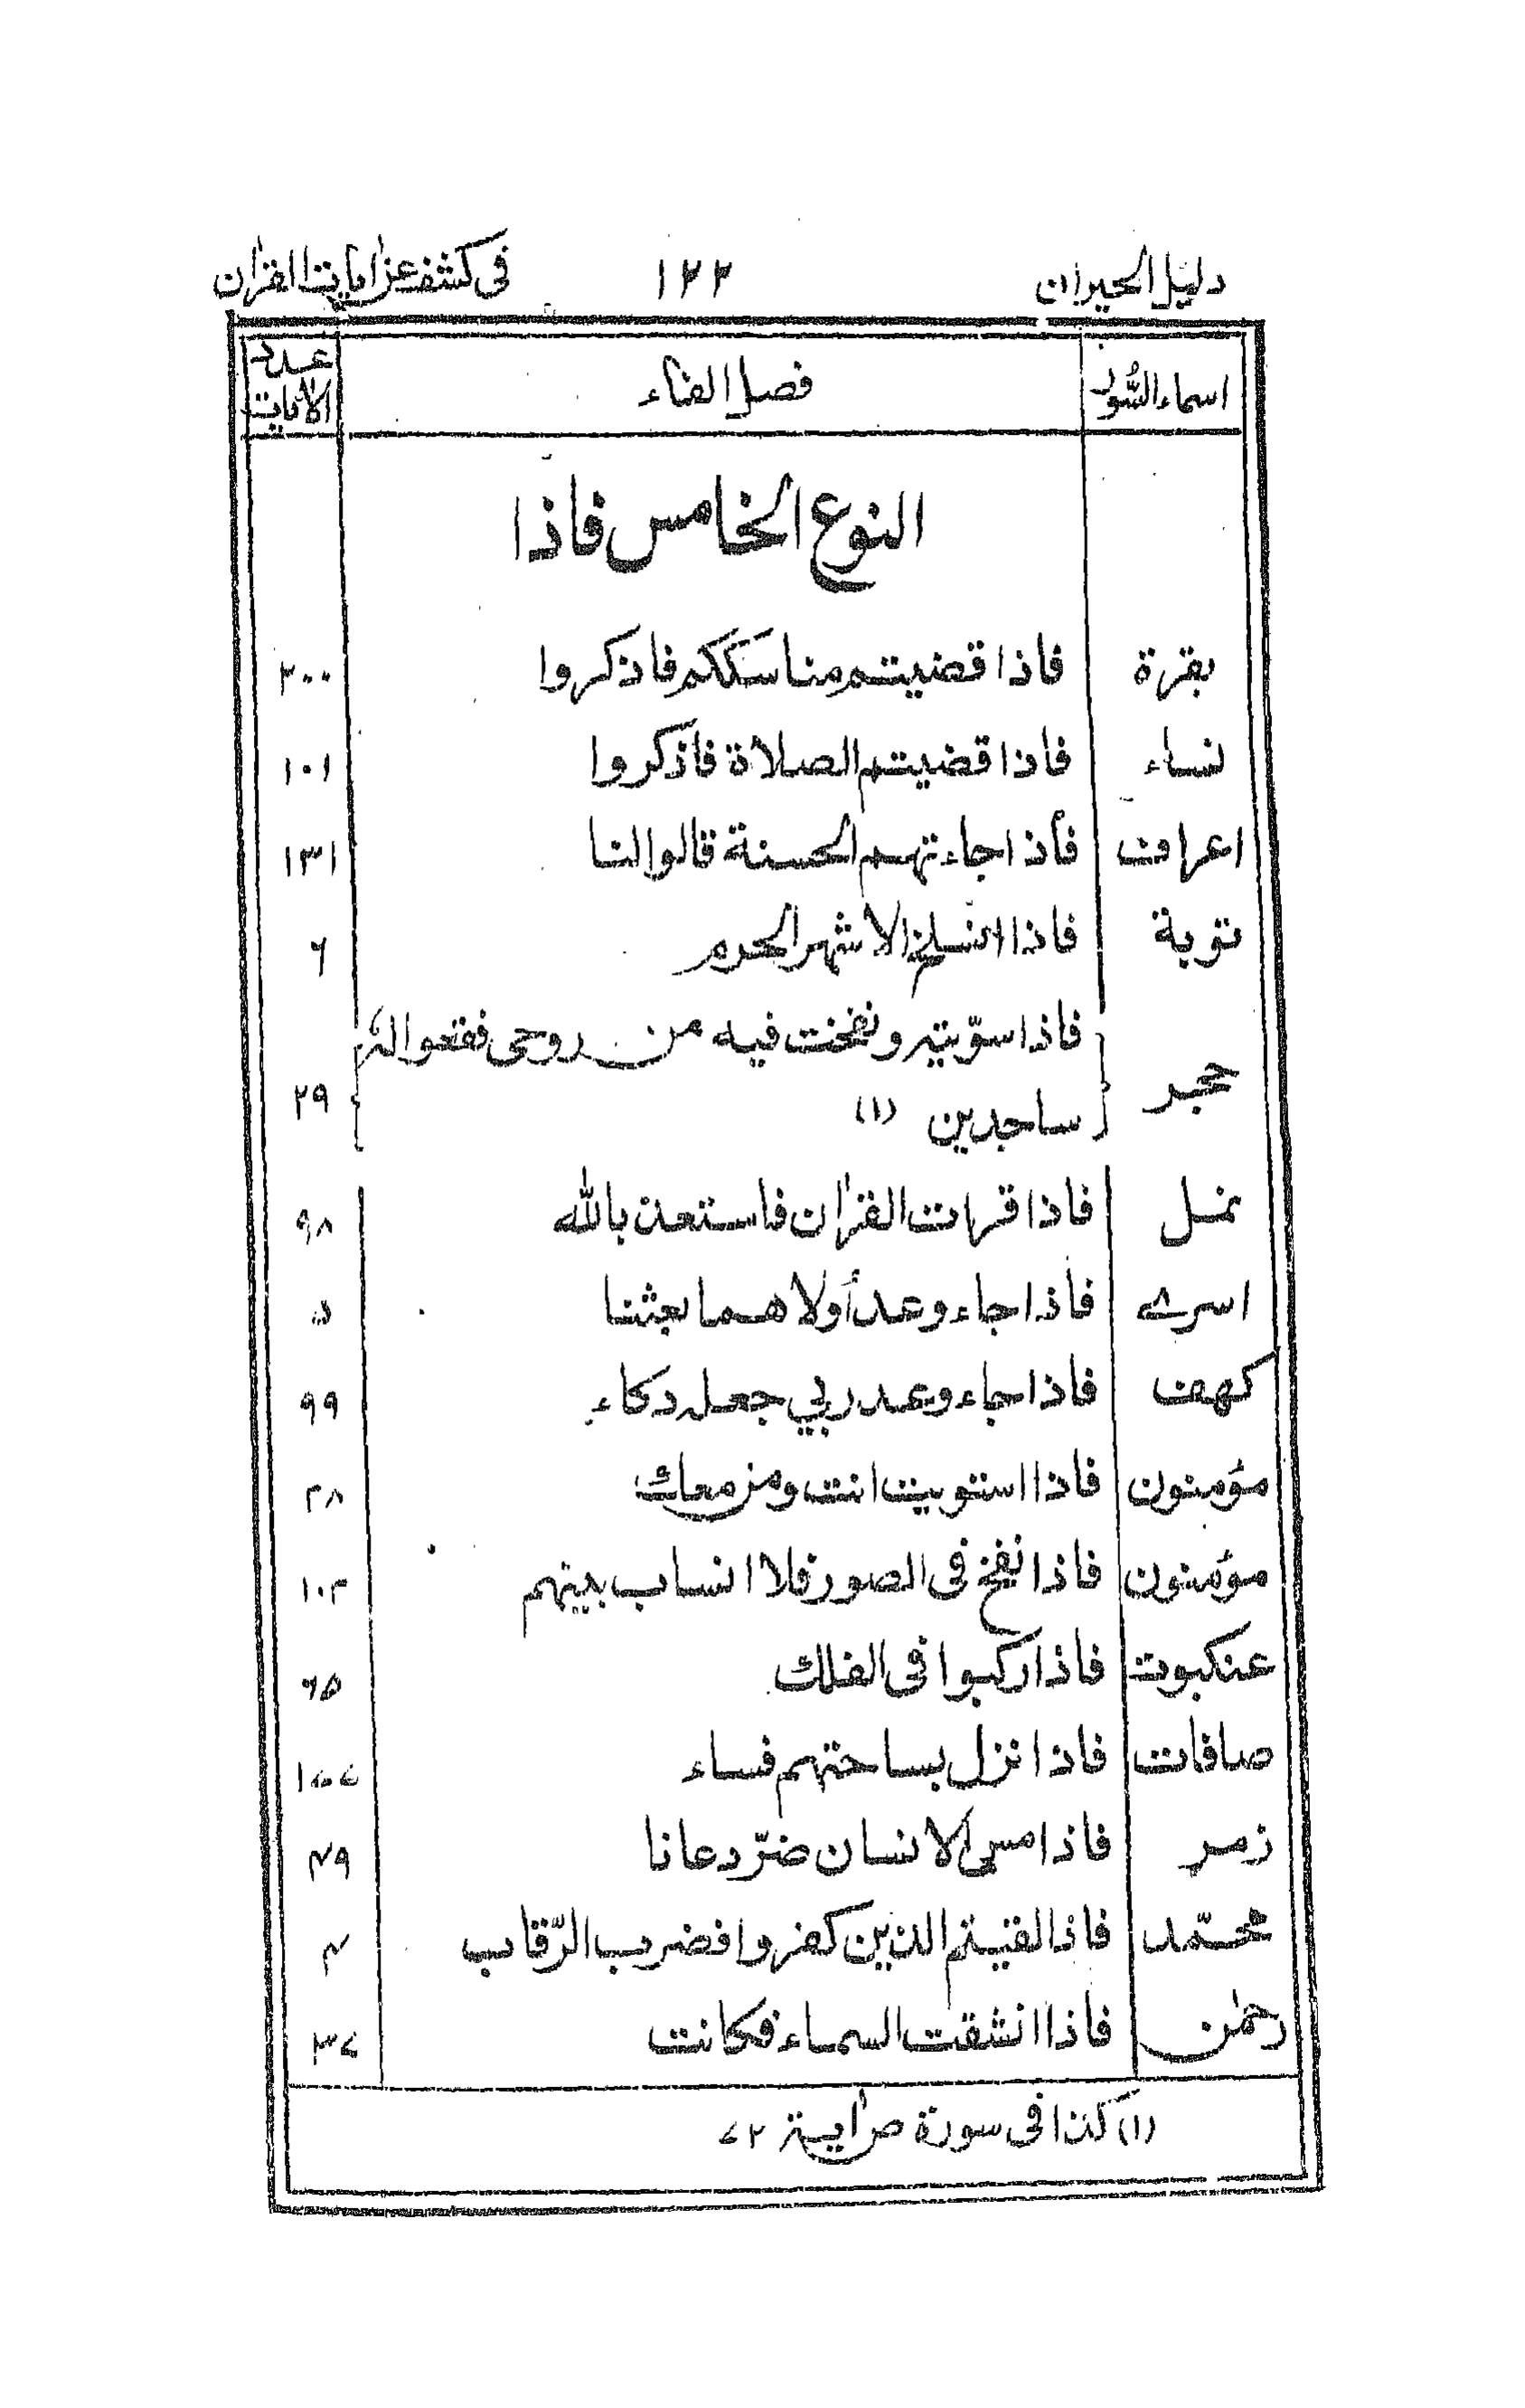 دليل الحيران ١٢٢ في كشف عن اٰيات القراٰن
اسماء السُّور فصل الفاء عدد الاٰيات
النوع الخامس فاذا
بقرة فاذا قضيتم مناسككم فاذكروا ٢٠٠
نساء فاذا قضيتم الصلاة فاذكروا ١٠١
اعراف فاذا جاءتهم الحسنة قالوا لنا ١٣١
توبة فاذا انسلخ الاشهر الحرم ٦
حجر فاذا سوّيته ونفخت فيه من روحى فقعوا له
ساجدين (١) ٢٩
نمل فاذا قرات القراٰن فاستعذ بالله ٩٨
اسرے فاذا جاء وعد أولاهما بعثنا ٥
كهف فاذا جاء وعد ربي جعله دكاء ٩٩
مؤمنون فاذا استويت انت ومن معك ٢٨
مؤمنون فاذا نفخ فى الصور فلا انساب بينهم ١٠٢
عنكبوت فاذا ركبوا فى الفلك ٦٥
صافات فاذا نزل بساحتهم فساء ١٧٧
زمر فاذا مس الانسان ضرّ دعانا ٤٩
محمّد فاذا لقيتم الذين كفروا فضرب الرّقاب ٤
رحمٰن فاذا انشقت السماء فكانت ٣٧
(١) كذا فى سورة ص اٰية ٧٢